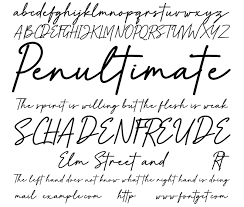 abcdefghijklmnopqrstuvwxyz
ABCDEFGHIJKLMNOPQRSTUVWXYZ
Penultimate
The spirit is willing but the flesh is weak
SCHADENFREUDE
Elm Street and
The left hand does not know what the right hand is doing
mail example.com http www.fontget.com